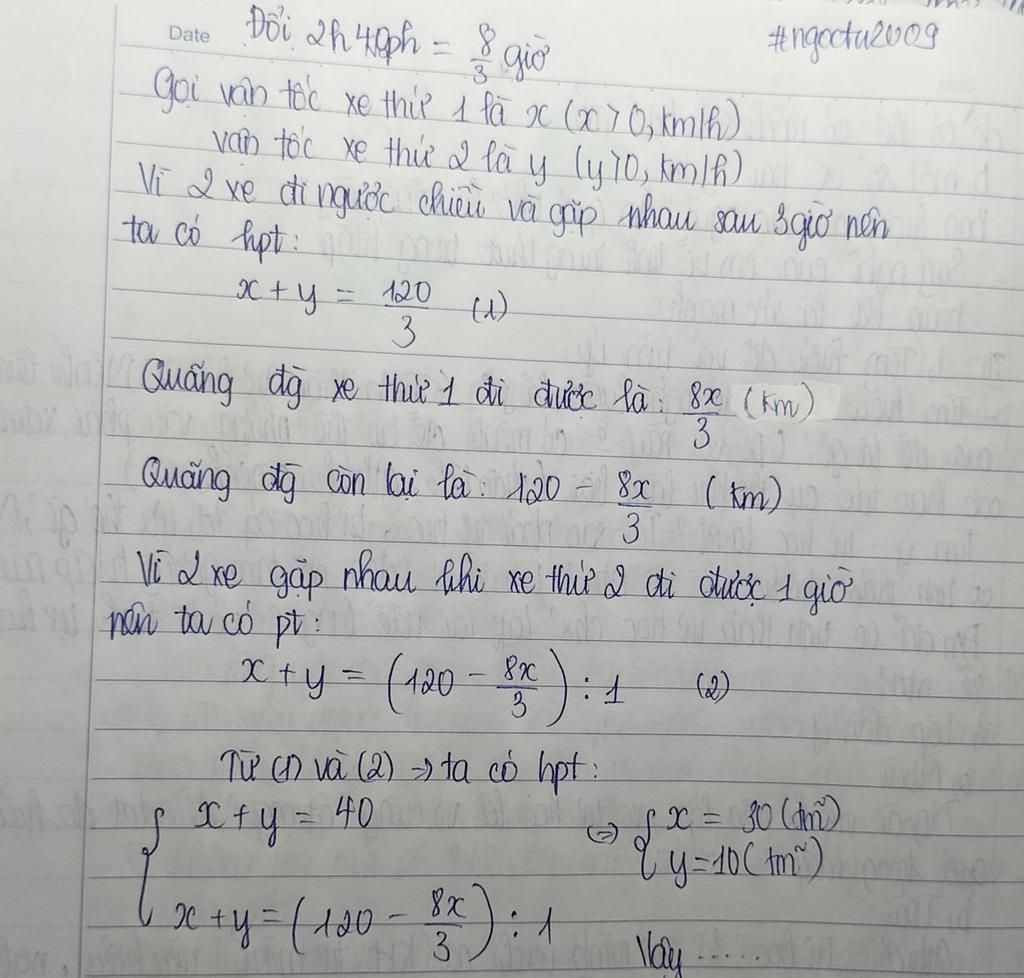 Date Đổi 2h 40ph = 8/3 giờ #ngoctu2009
Gọi vận tốc xe thứ 1 là x (x > 0, km/h)
vận tốc xe thứ 2 là y (y > 0, km/h)
Vì 2 xe đi ngược chiều và gặp nhau sau 3 giờ nên
ta có hpt:
x + y = 120/3 (1)
Quãng đg xe thứ 1 đi được là: 8x/3 (km)
Quãng đg còn lại là: 120 - 8x/3 (km)
Vì 2 xe gặp nhau khi xe thứ 2 đi được 1 giờ
nên ta có pt:
x + y = (120 - 8x/3) : 1 (2)
Từ (1) và (2) => ta có hpt:
{ x + y = 40 <=> { x = 30 (tm)
y = 10 (tm)
x + y = (120 - 8x/3) : 1
Vậy .....